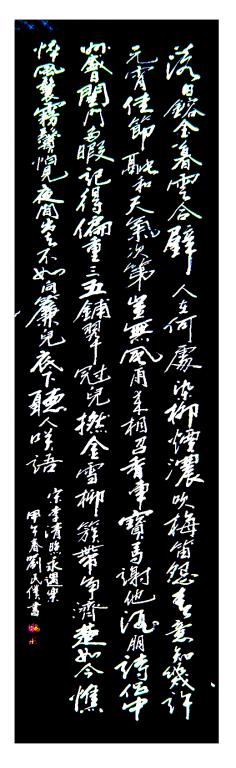 落日鎔金暮雲合璧人在何處染柳煙濃吹梅笛怨春意知幾許
元宵佳節融和天氣次第豈無風雨來相召香車寶馬謝他酒朋詩侶中
州盛日閨門多暇記得偏重三五鋪翠冠兒撚金雪柳簇帶爭濟楚如今憔
悴風鬟霧鬢怕見夜間出去不如向簾兒底下聽人笑語
宋李清照永遇樂
甲午春劉民僕書